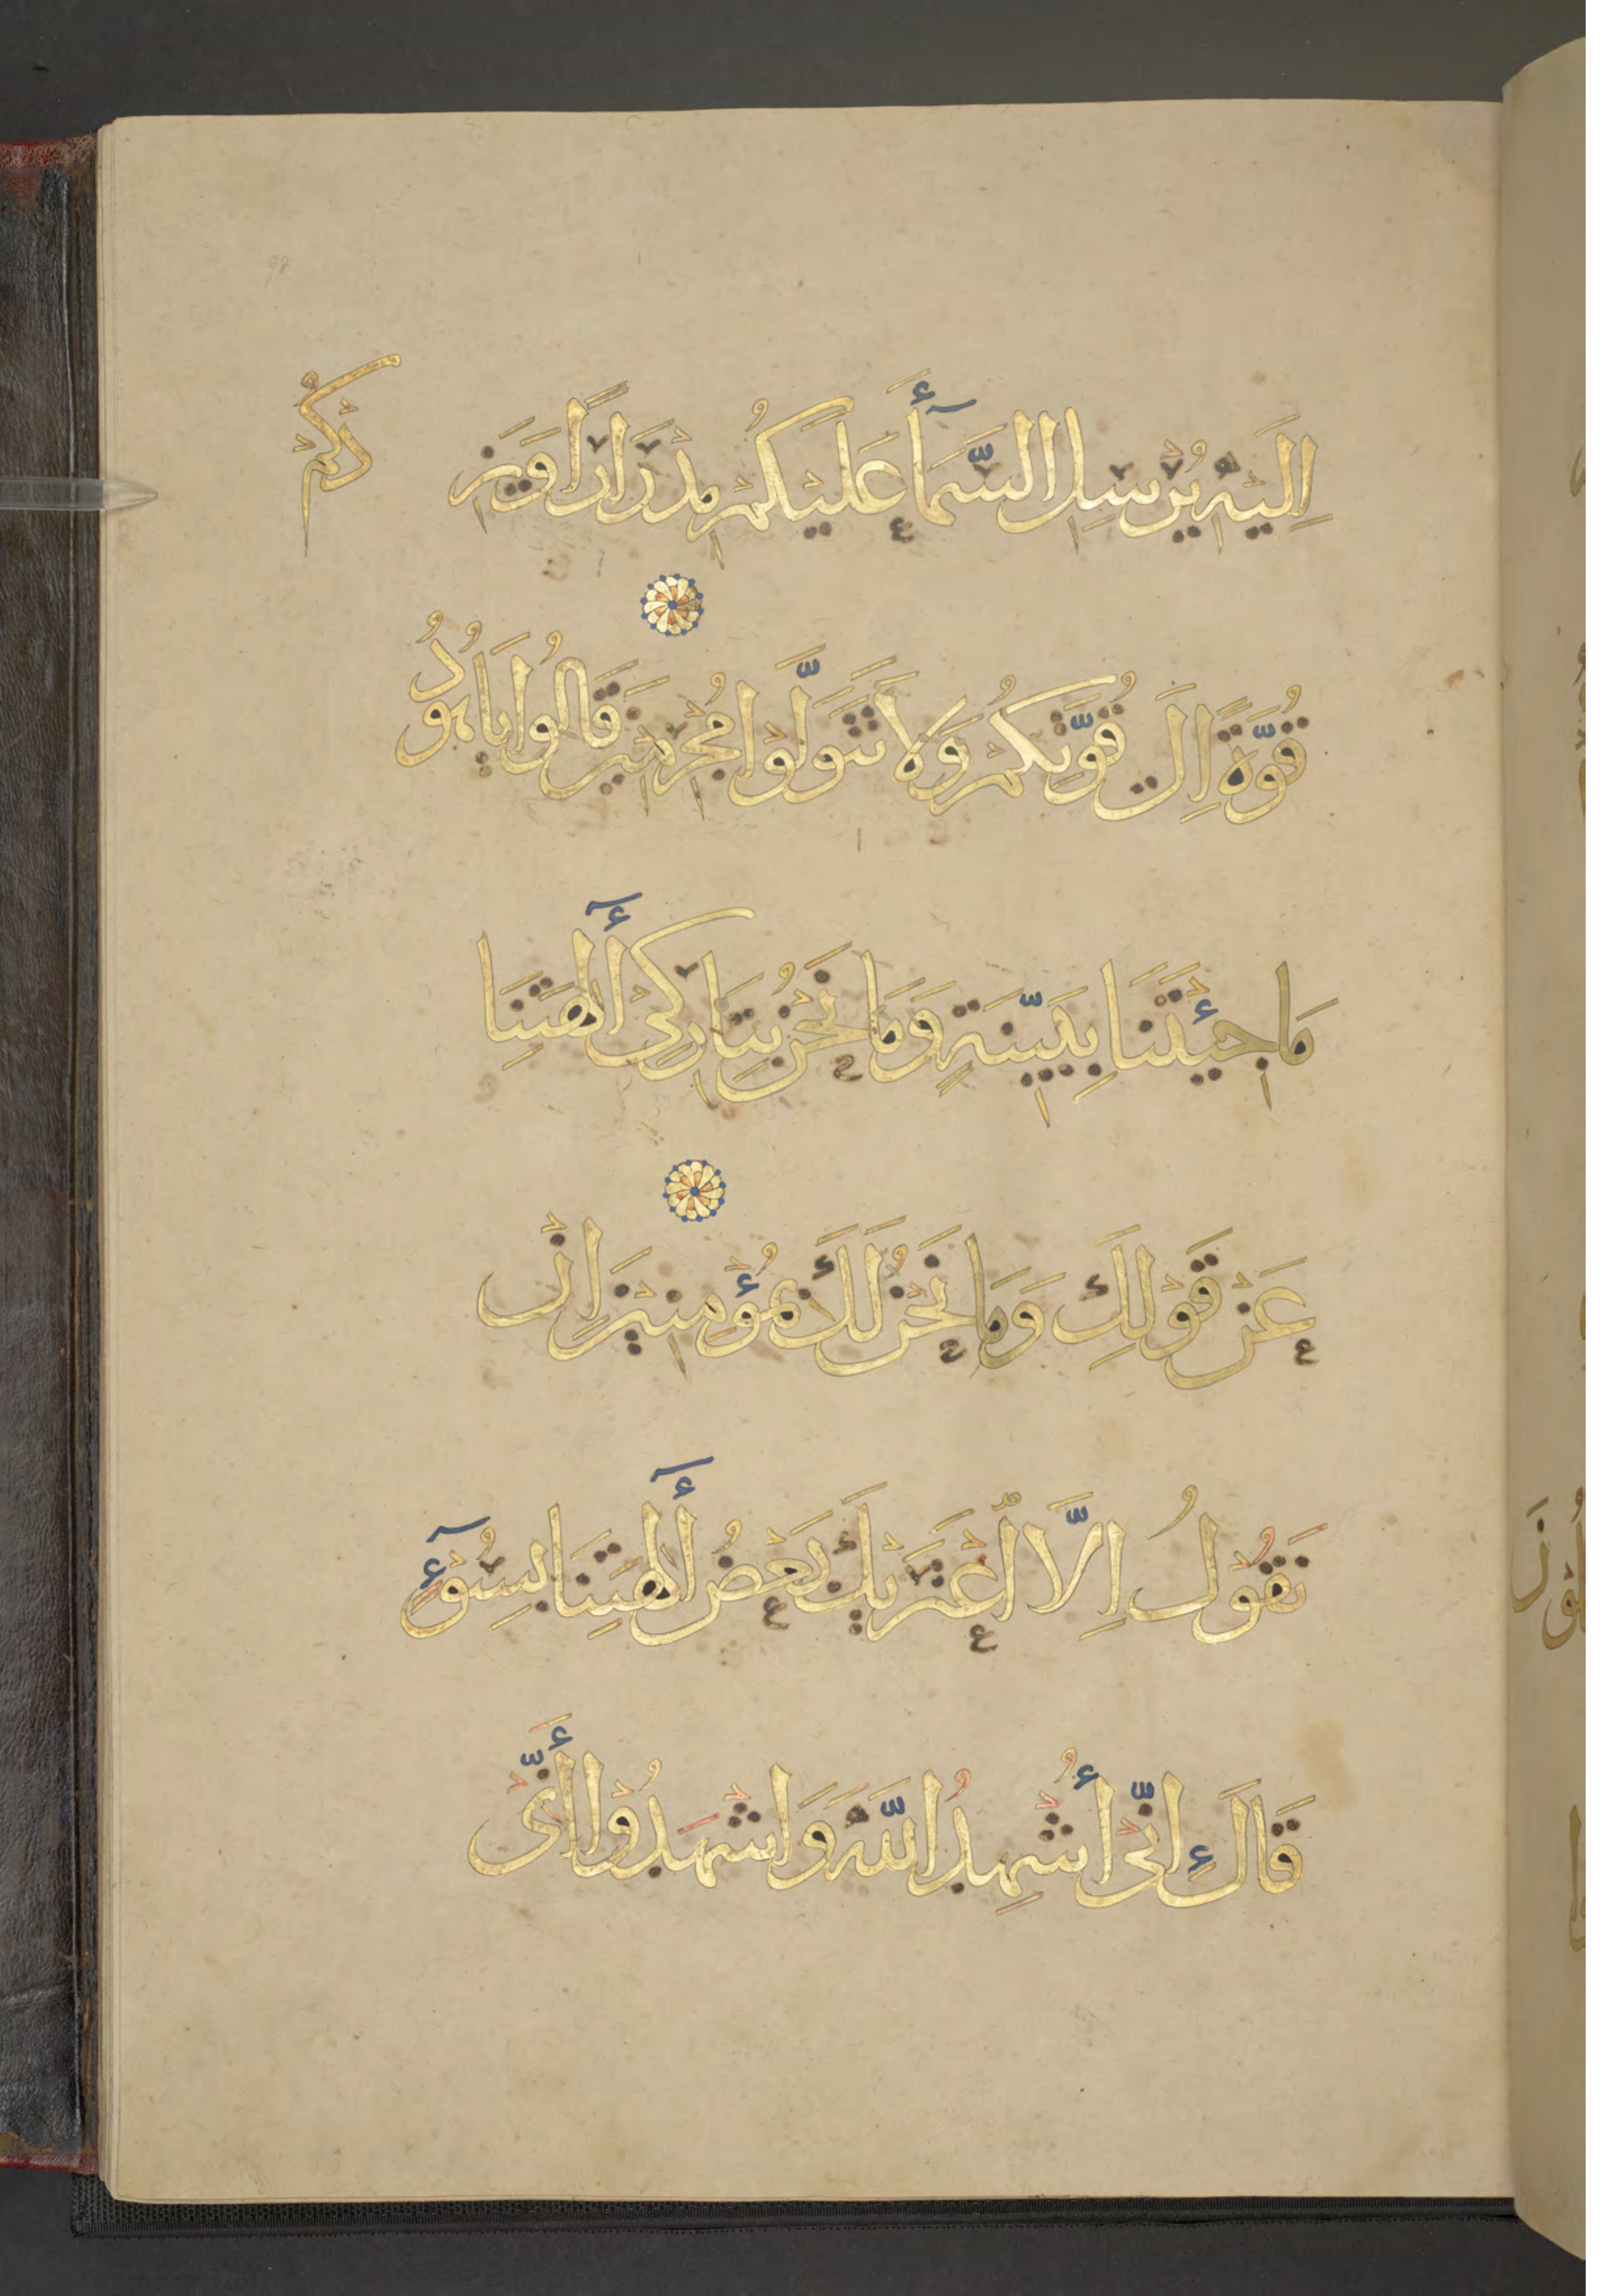 اِلَيْهِ يُرْسِلِ السَّمَآءَ عَلَيْكُمْ مِدْرَارًا وَيَزِ
دْكُمْ
قُوَّةً اِلَى قُوَّتِكُمْ وَلَا تَتَوَلَّوْا مُجْرِمِينَ قَالُوا يَا هُودُ
مَا جِئْتَنَا بِبَيِّنَةٍ وَمَا نَحْنُ بِتَارِكِىْ أٓلِهَتِنَا
عَنْ قَوْلِكَ وَمَا نَحْنُ لَكَ بِمُؤْمِنِينَ اِنْ
نَقُولُ اِلَّا اعْتَرَىكَ بَعْضُ أٓلِهَتِنَا بِسُوٓءٍ
قَالَ اِنِّىْ أُشْهِدُ اللَّهَ وَاشْهَدُوْا أَنِّىْ